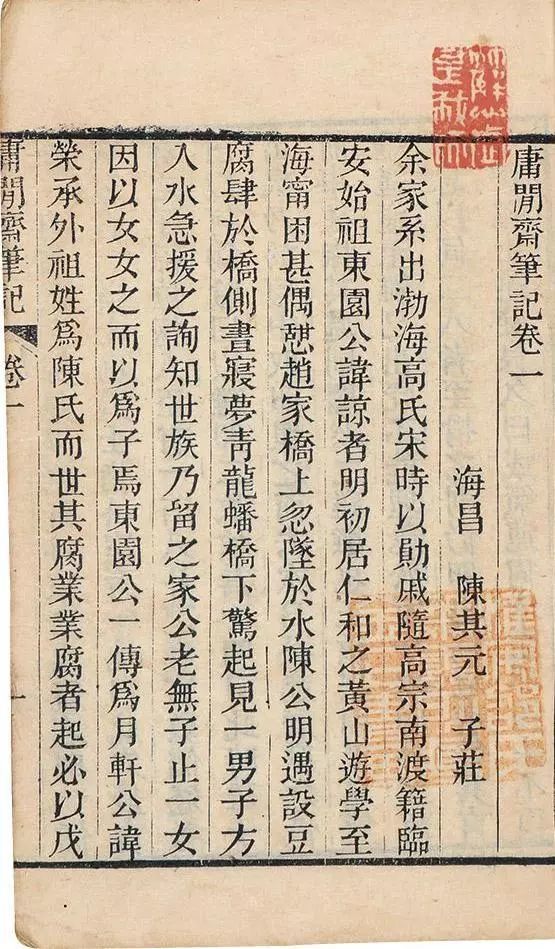 庸閒齋筆記卷一
海昌 陳其元 子莊
余家系出渤海高氏宋時以勛戚隨高宗南渡籍臨
安始祖東園公諱諒者明初居仁和之黃山遊學至
海甯困甚偶憩趙家橋上忽墜於水陳公明遇設豆
腐肆於橋側晝寢夢靑龍蟠橋下驚起見一男子方
入水急援之詢知世族乃留之家公老無子止一女
因以女女之而以爲子焉東園公一傳爲月軒公諱
榮承外祖姓爲陳氏而世其腐業業腐者起必以戊
庸閒齋筆記 卷一 一